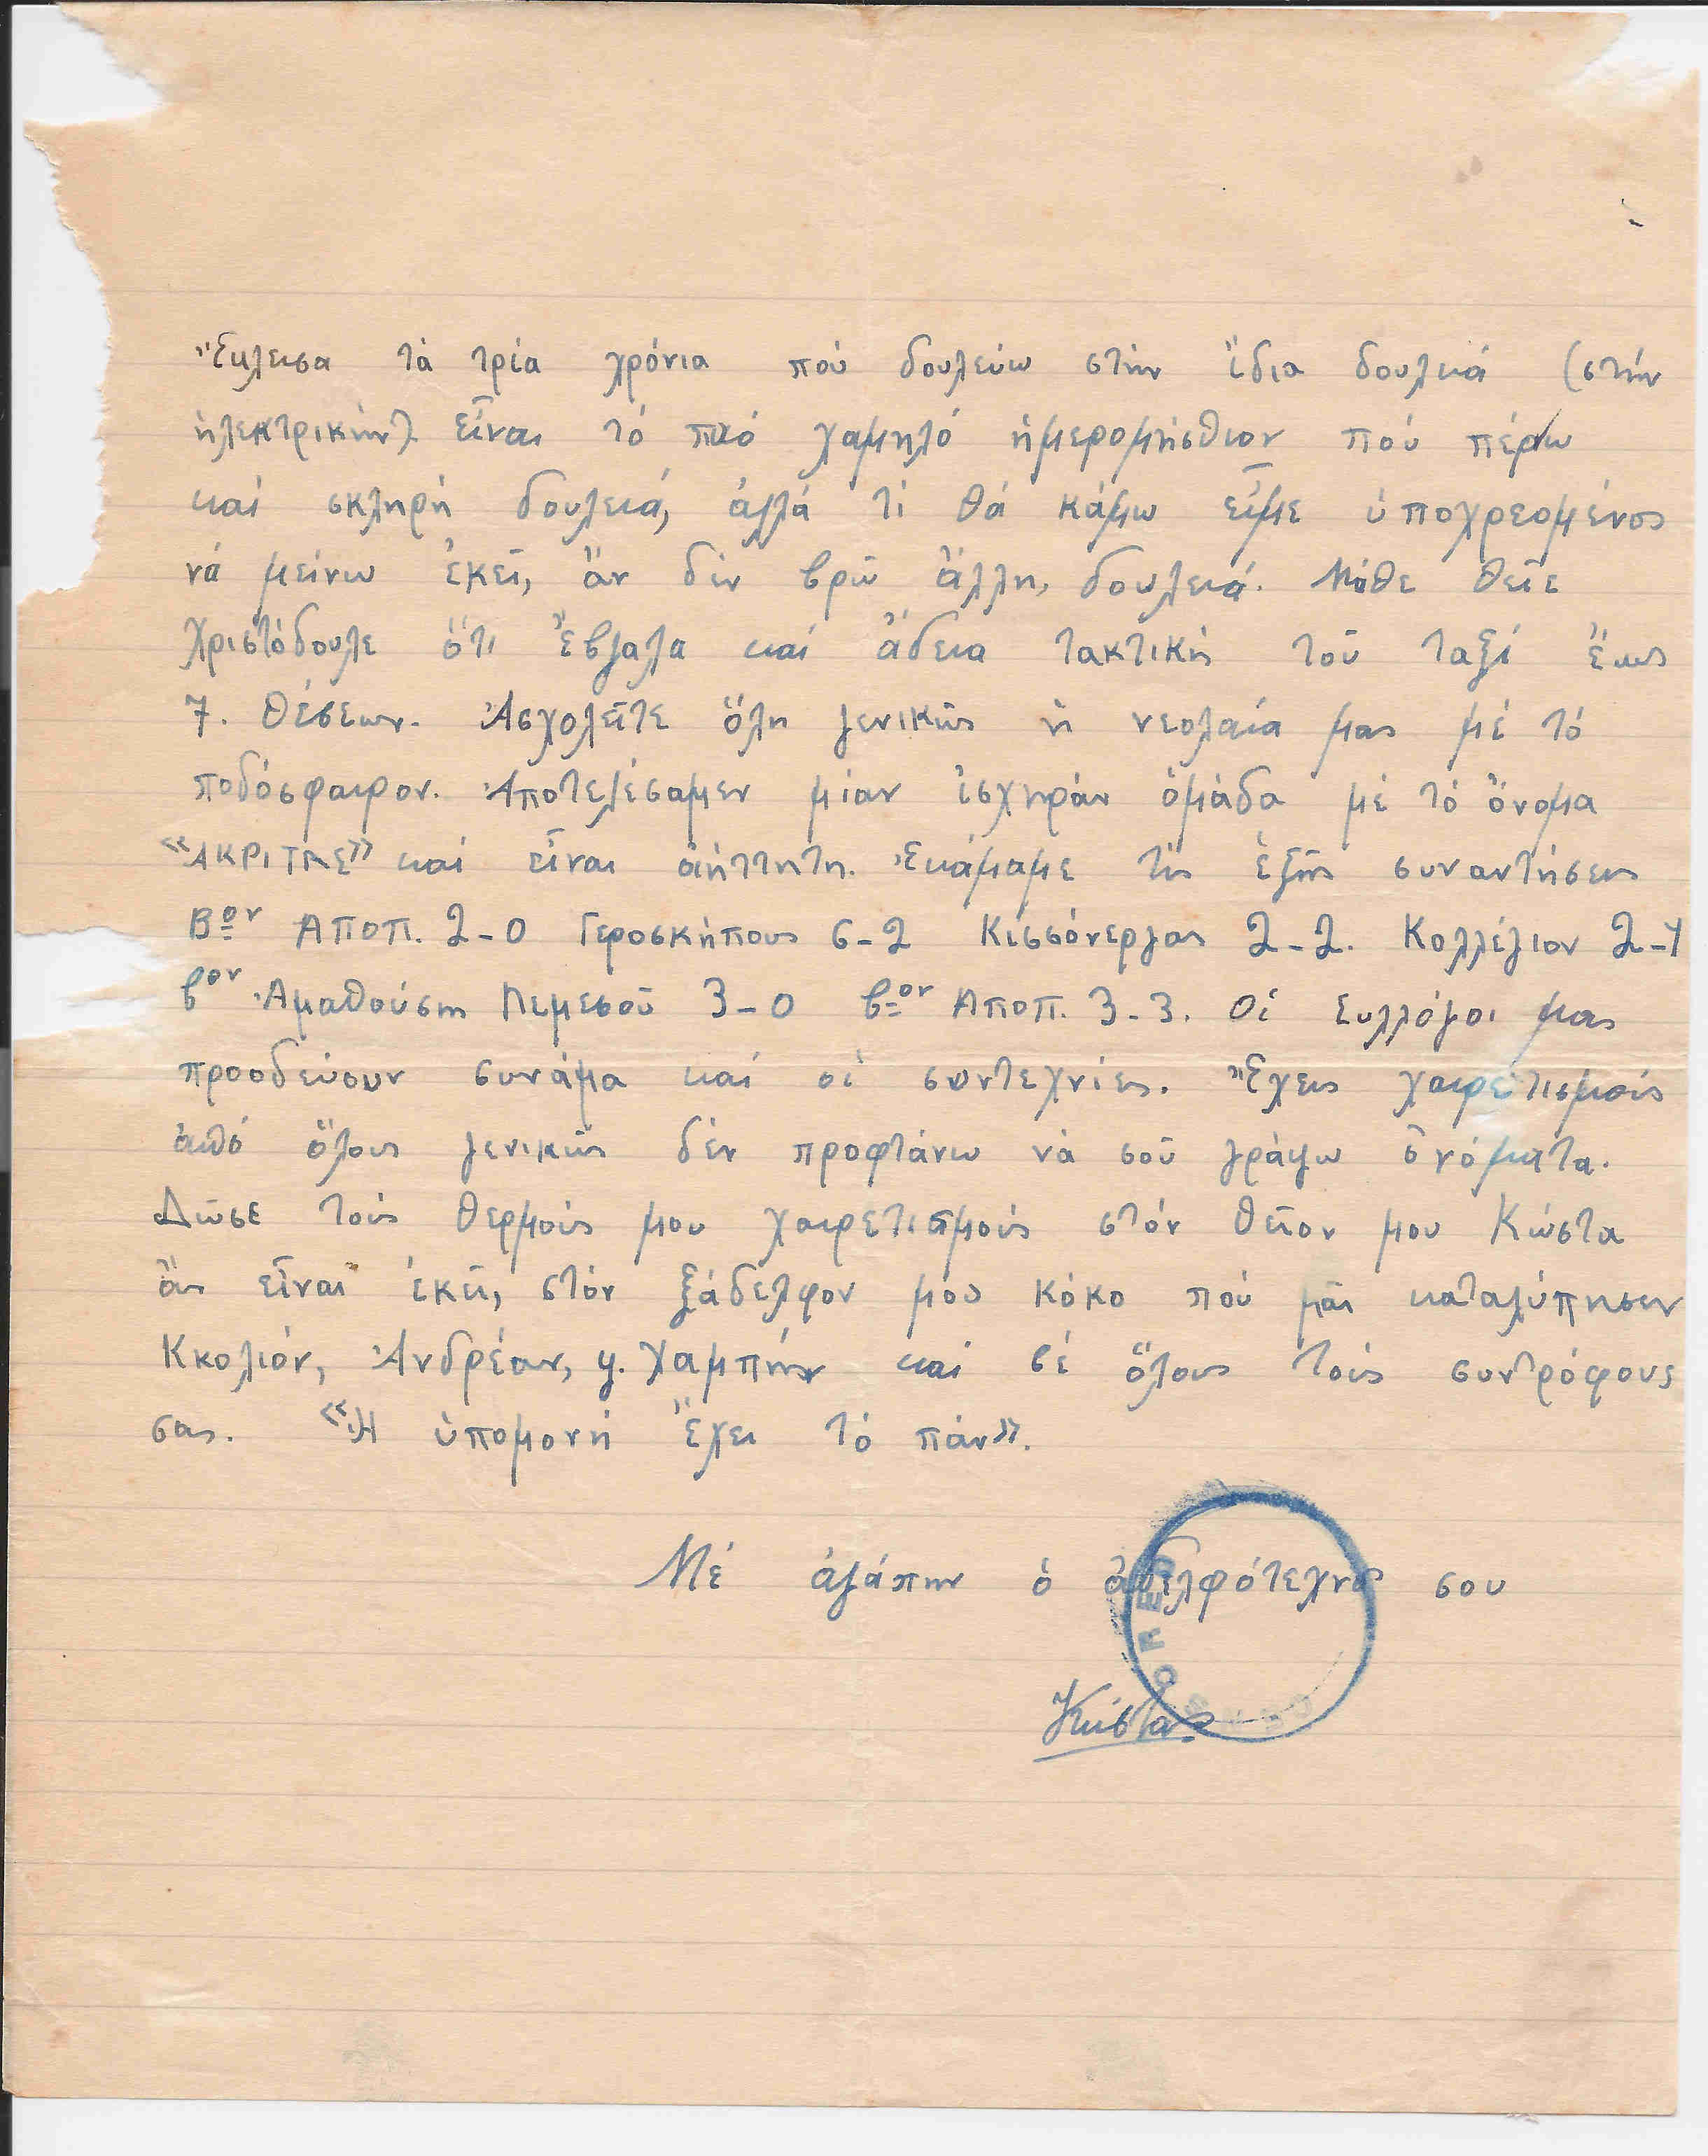 Ἔκλεισα τὰ τρία χρόνια ποὺ δουλεύω στὴν ἴδια δουλειά (στήν
ἠλεκτρικὴν). εἶναι τό πιό χαμηλό ἡμερομήσθιον πού πέρνω
καί σκληρή δουλειά, ἀλλά τί θά κάμω εἶμε ὑποχρεομένος
νά μείνω ἐκεῖ, ἄν δέν βρῶ ἄλλη, δουλειά. Μάθε θεῖε
Χριστόδουλε ὅτι ἔβγαλα καί ἄδεια τακτική τοῦ ταξί ἕως
7. θέσεων. Ἀσχολεῖτε ὅλη γενικῶς ἡ νεολαία μας μέ τό
ποδόσφαιρον. Ἀποτελέσαμεν μίαν ἰσχηράν ὁμάδα μέ τό ὄνομα
«ΑΚΡΙΤΑΣ» καί εἶναι ἀήττητη. Ἐκάμαμε τίς ἑξῆς συναντήσεις
Βον ΑΠΟΠ. 2-0 Γεροσκήπους 6-2 Κισσόνεργας 2-2. Κολλέγιον 2-1
βον Ἀμαθούσης Λεμεσοῦ 3-0 βον ΑΠΟΠ. 3-3. Οἱ Συλλόγοι μας
προοδεύουν συνάμα καί οἱ συντεχνίες. Ἔχεις χαιρετισμούς
ἀπό ὅλους γενικῶς δέν προφτάνω νὰ σοῦ γράψω ὀνόματα.
Δῶσε τούς θερμούς μου χαιρετισμούς στόν θεῖον μου Κώστα
ἄν εἶναι ἐκεῖ, στόν ξάδελφον μου Κόκο πού μᾶς καταλύπησεν
Κκολιόν, Ἀνδρέαν, γ. Χαμπήν καί σέ ὅλους τούς συντρόφους
σας. «Ἡ ὑπομονή ἔχει τό πάν».
Μέ ἀγάπην ὁ ἀδελφότεχνος σου
Κώστας